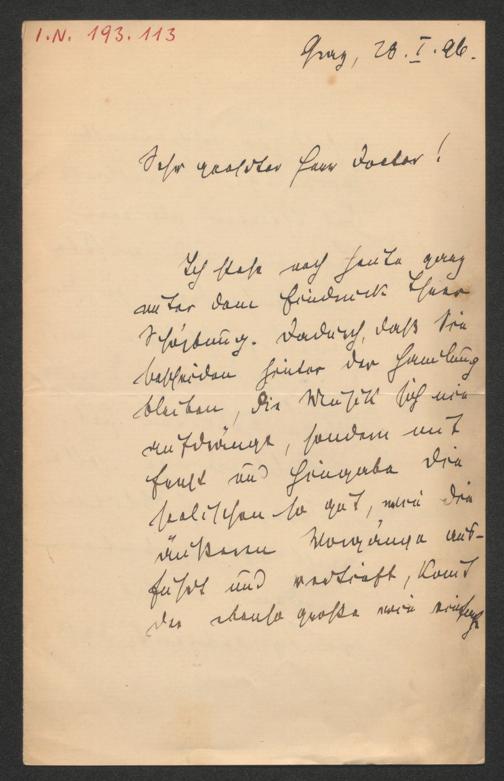 I.N. 193.113
Graz, 23. I. 96.
Sehr geehrter Herr Doctor!
Ich stehe noch heute ganz
unter dem Eindruck Ihrer
Schöpfung. Dadurch, daß Sie
bescheiden hinter der Handlung
bleiben, die Musik sich nie
aufdrängt, sondern mit
Ernst und Hingabe die
seelischen so gut, wie die
äußeren Vorgänge aus-
führt und vertieft, komt
der ebenso große wie einfache